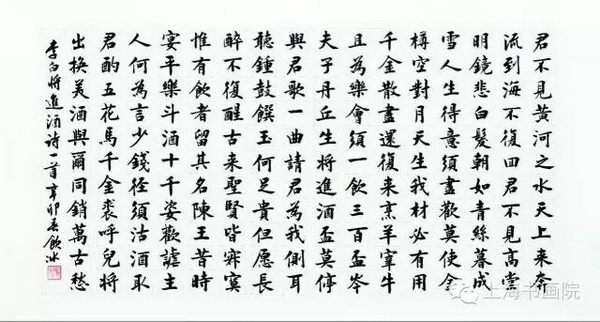 君不見黃河之水天上來奔
流到海不復回君不見高堂
明鏡悲白髮朝如青絲暮成
雪人生得意須盡歡莫使金
樽空對月天生我材必有用
千金散盡還復來烹羊宰牛
且為樂會須一飲三百盃岑
夫子丹丘生將進酒盃莫停
與君歌一曲請君為我側耳
聽鍾鼓饌玉何足貴但愿長
醉不復醒古来聖賢皆寂寞
惟有飲者留其名陳王昔時
宴平樂斗酒十千姿歡謔主
人何為言少錢徑須沽酒取
君酌五花馬千金裘呼兒將
出換美酒與爾同銷萬古愁
李白將進酒诗一首辛卯春飲冰
上海书画院